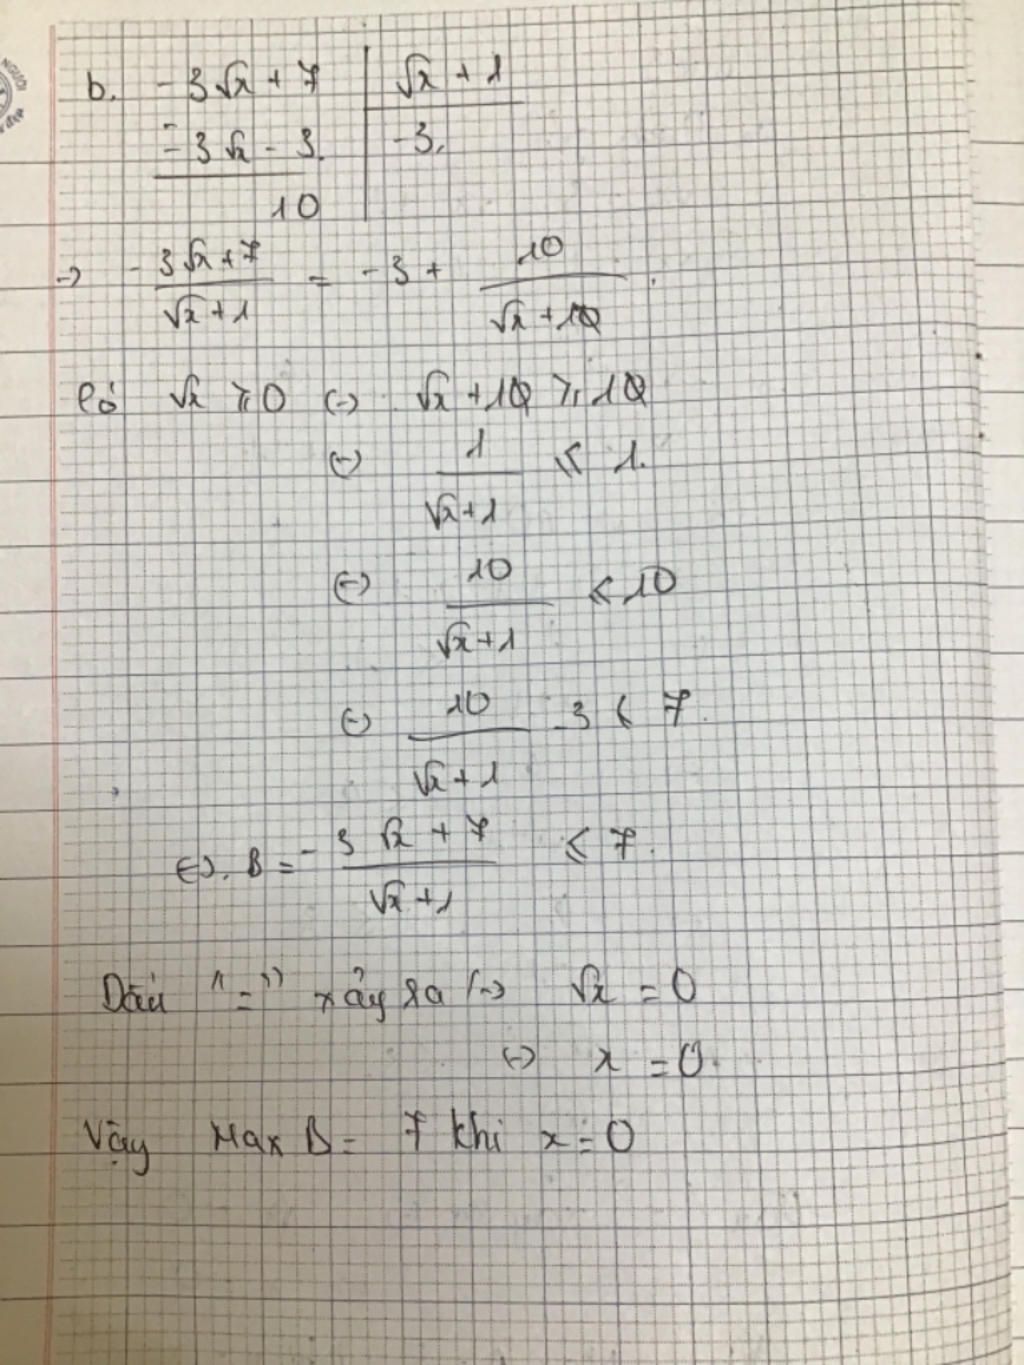 b. -3√x + 7 | √x + 1
- -3√x - 3. | -3.
10
→ -3√x+7 / √x+1 = -3 + 10 / √x+1 .
Có √x ⩾ 0 (-) √x + 1 ⩾ 1
(-) 1 / √x+1 ⩽ 1.
(-) 10 / √x+1 ⩽ 10
(-) 10 / √x+1 - 3 ⩽ 7.
(-). B = -3√x + 7 / √x+1 ⩽ 7.
Dấu "=" xảy ra (-) √x = 0
(-) x = 0.
Vậy Max B = 7 khi x = 0